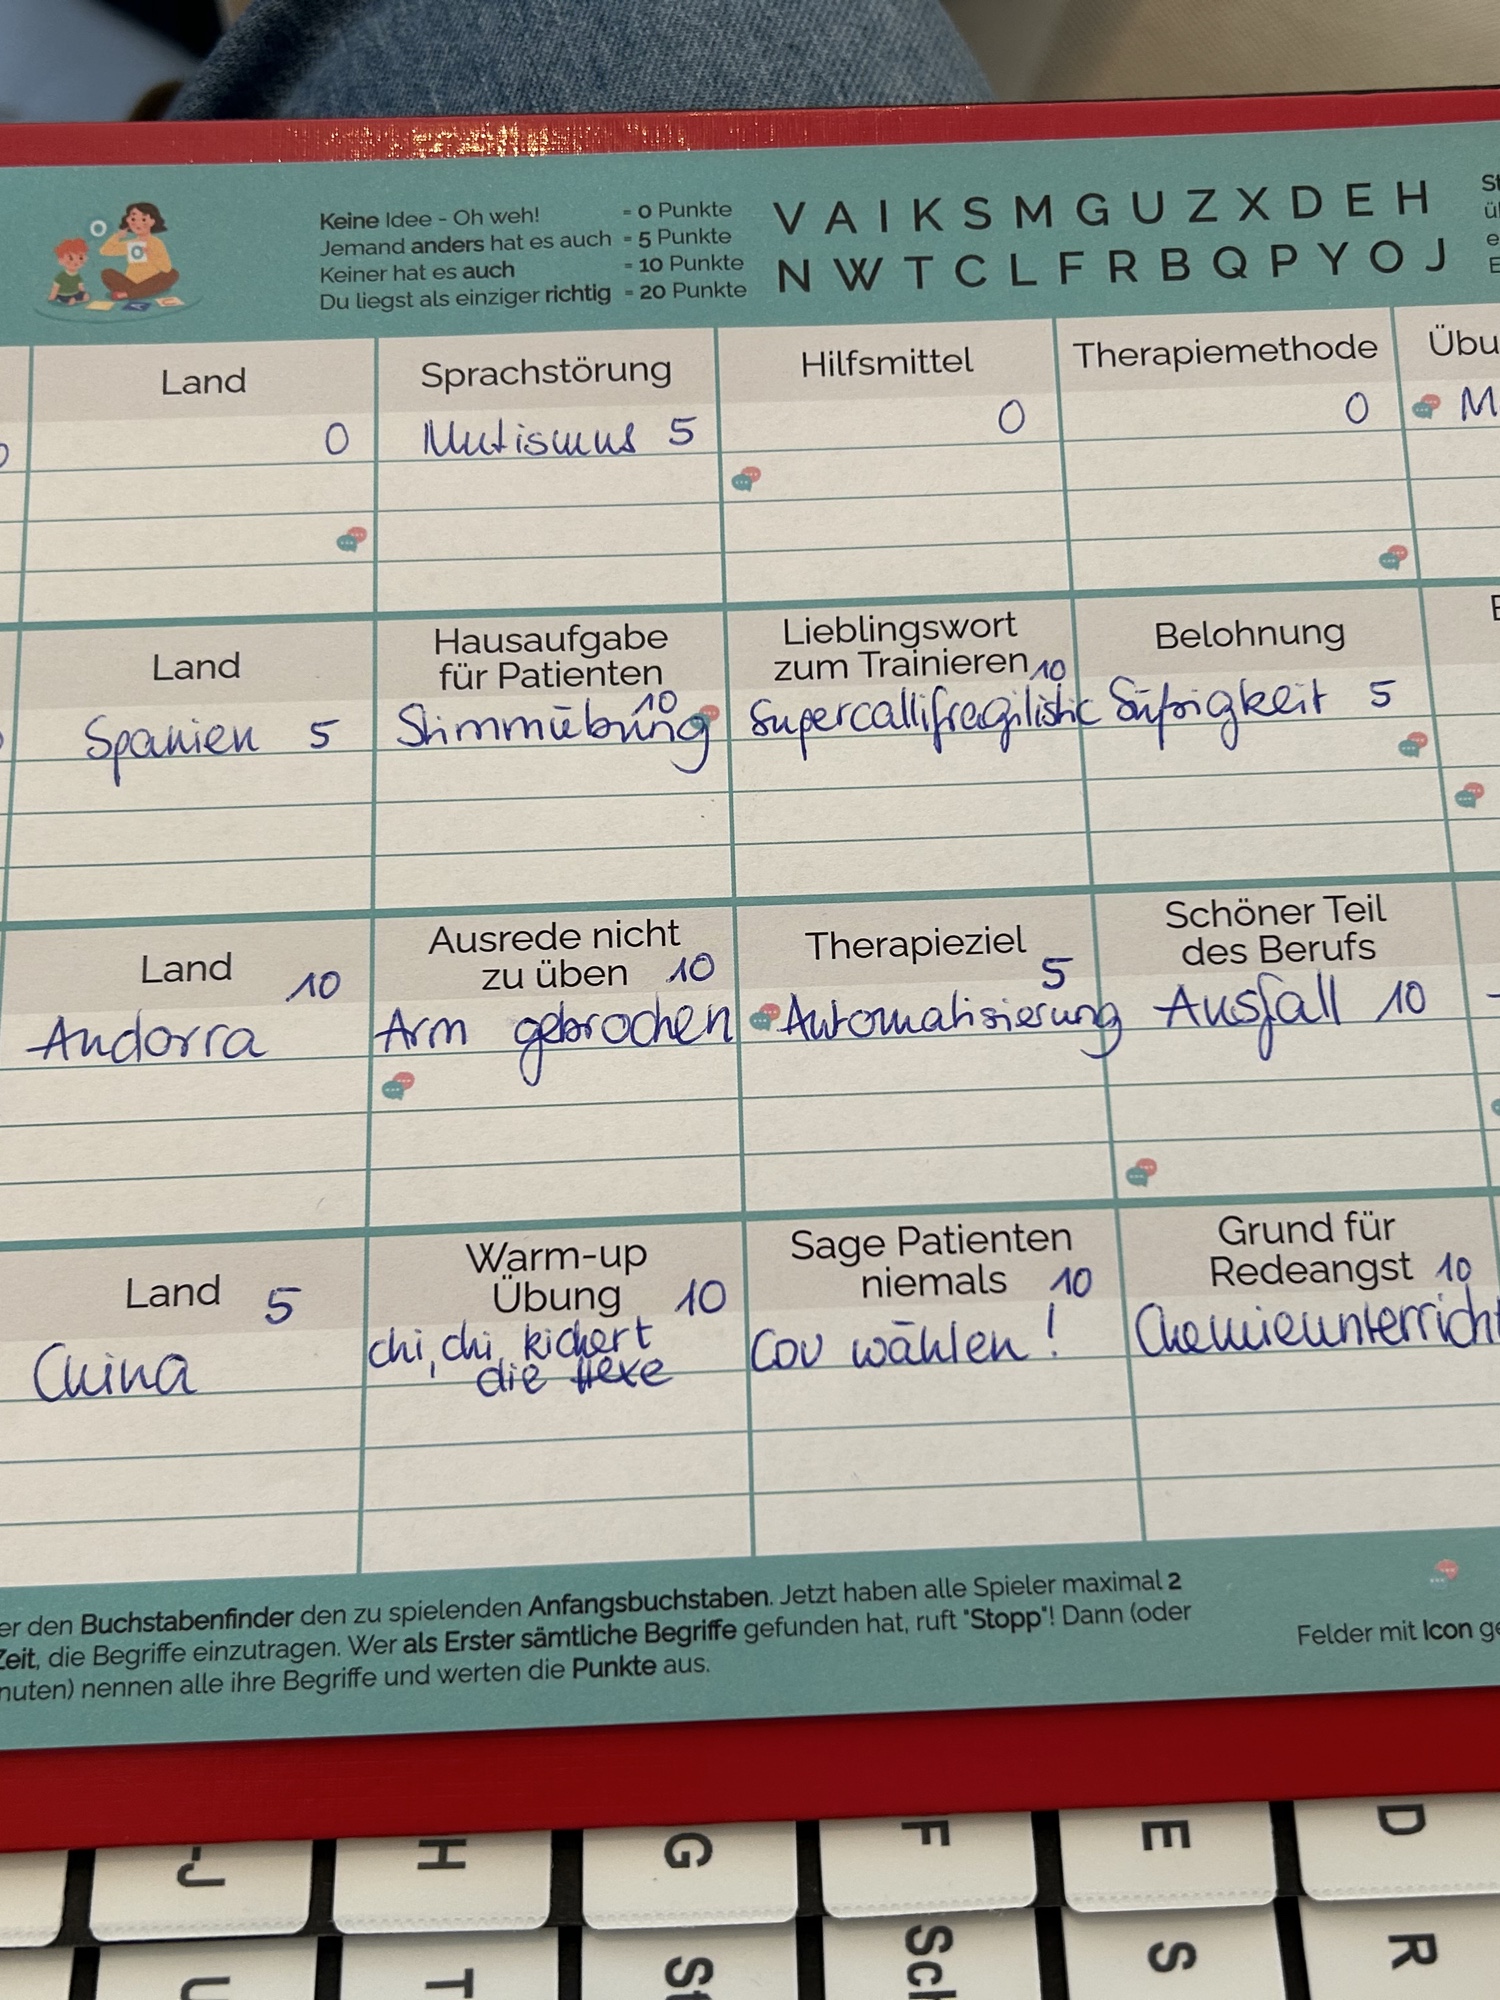 Keine Idee - Oh weh! = 0 Punkte
Jemand anders hat es auch = 5 Punkte
Keiner hat es auch = 10 Punkte
Du liegst als einziger richtig = 20 Punkte
V A I K S M G U Z X D E H
N W T C L F R B Q P Y O J
Land
Sprachstörung
Hilfsmittel
Therapiemethode
Übu
0
Mutismus 5
0
0
M
Land
Hausaufgabe
für Patienten
10
Lieblingswort
zum Trainieren 10
Belohnung
Spanien 5
Stimmübung
Supercallifragilistic
Süßigkeit 5
Land 10
Ausrede nicht
zu üben 10
Therapieziel
5
Schöner Teil
des Berufs
Andorra
Arm gebrochen
Automatisierung
Ausfall 10
Land 5
Warm-up
Übung 10
Sage Patienten
niemals 10
Grund für
Redeangst 10
China
chi, chi kichert
die Hexe
COV wählen!
Chemieunterricht
er den Buchstabenfinder den zu spielenden Anfangsbuchstaben. Jetzt haben alle Spieler maximal 2
Zeit, die Begriffe einzutragen. Wer als Erster sämtliche Begriffe gefunden hat, ruft "Stopp"! Dann (oder
nuten) nennen alle ihre Begriffe und werten die Punkte aus.
Felder mit Icon ge
J H G F E D
U T St Sch S R